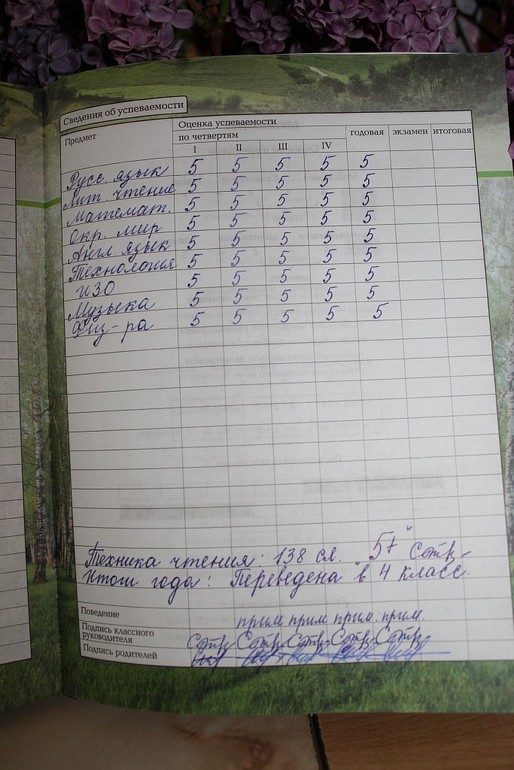 Сведения об успеваемости
Предмет Оценка успеваемости
по четвертям годовая экзамен итоговая
I II III IV
Русс. язык 5 5 5 5 5
Лит чтение 5 5 5 5 5
Математ. 5 5 5 5 5
Окр. мир 5 5 5 5 5
Англ язык 5 5 5 5 5
Технология 5 5 5 5 5
ИЗО 5 5 5 5 5
Музыка 5 5 5 5 5
Физ-ра 5 5 5 5 5
Техника чтения: 138 сл. "5+"
Итоги года: Переведена в 4 класс.
Поведение прим прим прим. прим.
Подпись классного
руководителя
Подпись родителей